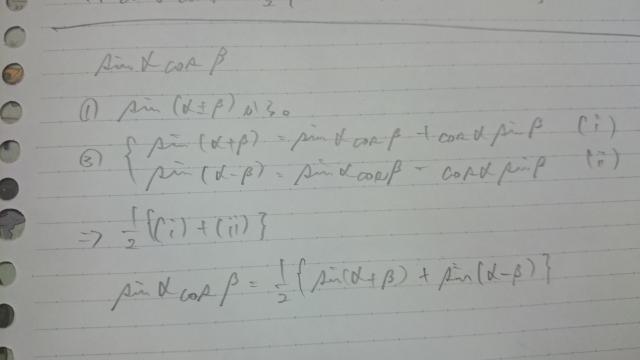 sin α cos β
① sin (α±β) から。
③ { sin (α+β) = sin α cos β + cos α sin β (i)
sin (α-β) = sin α cos β - cos α sin β (ii)
⇒ 1/2 {(i) + (ii)}
sin α cos β = 1/2 { sin(α+β) + sin(α-β) }